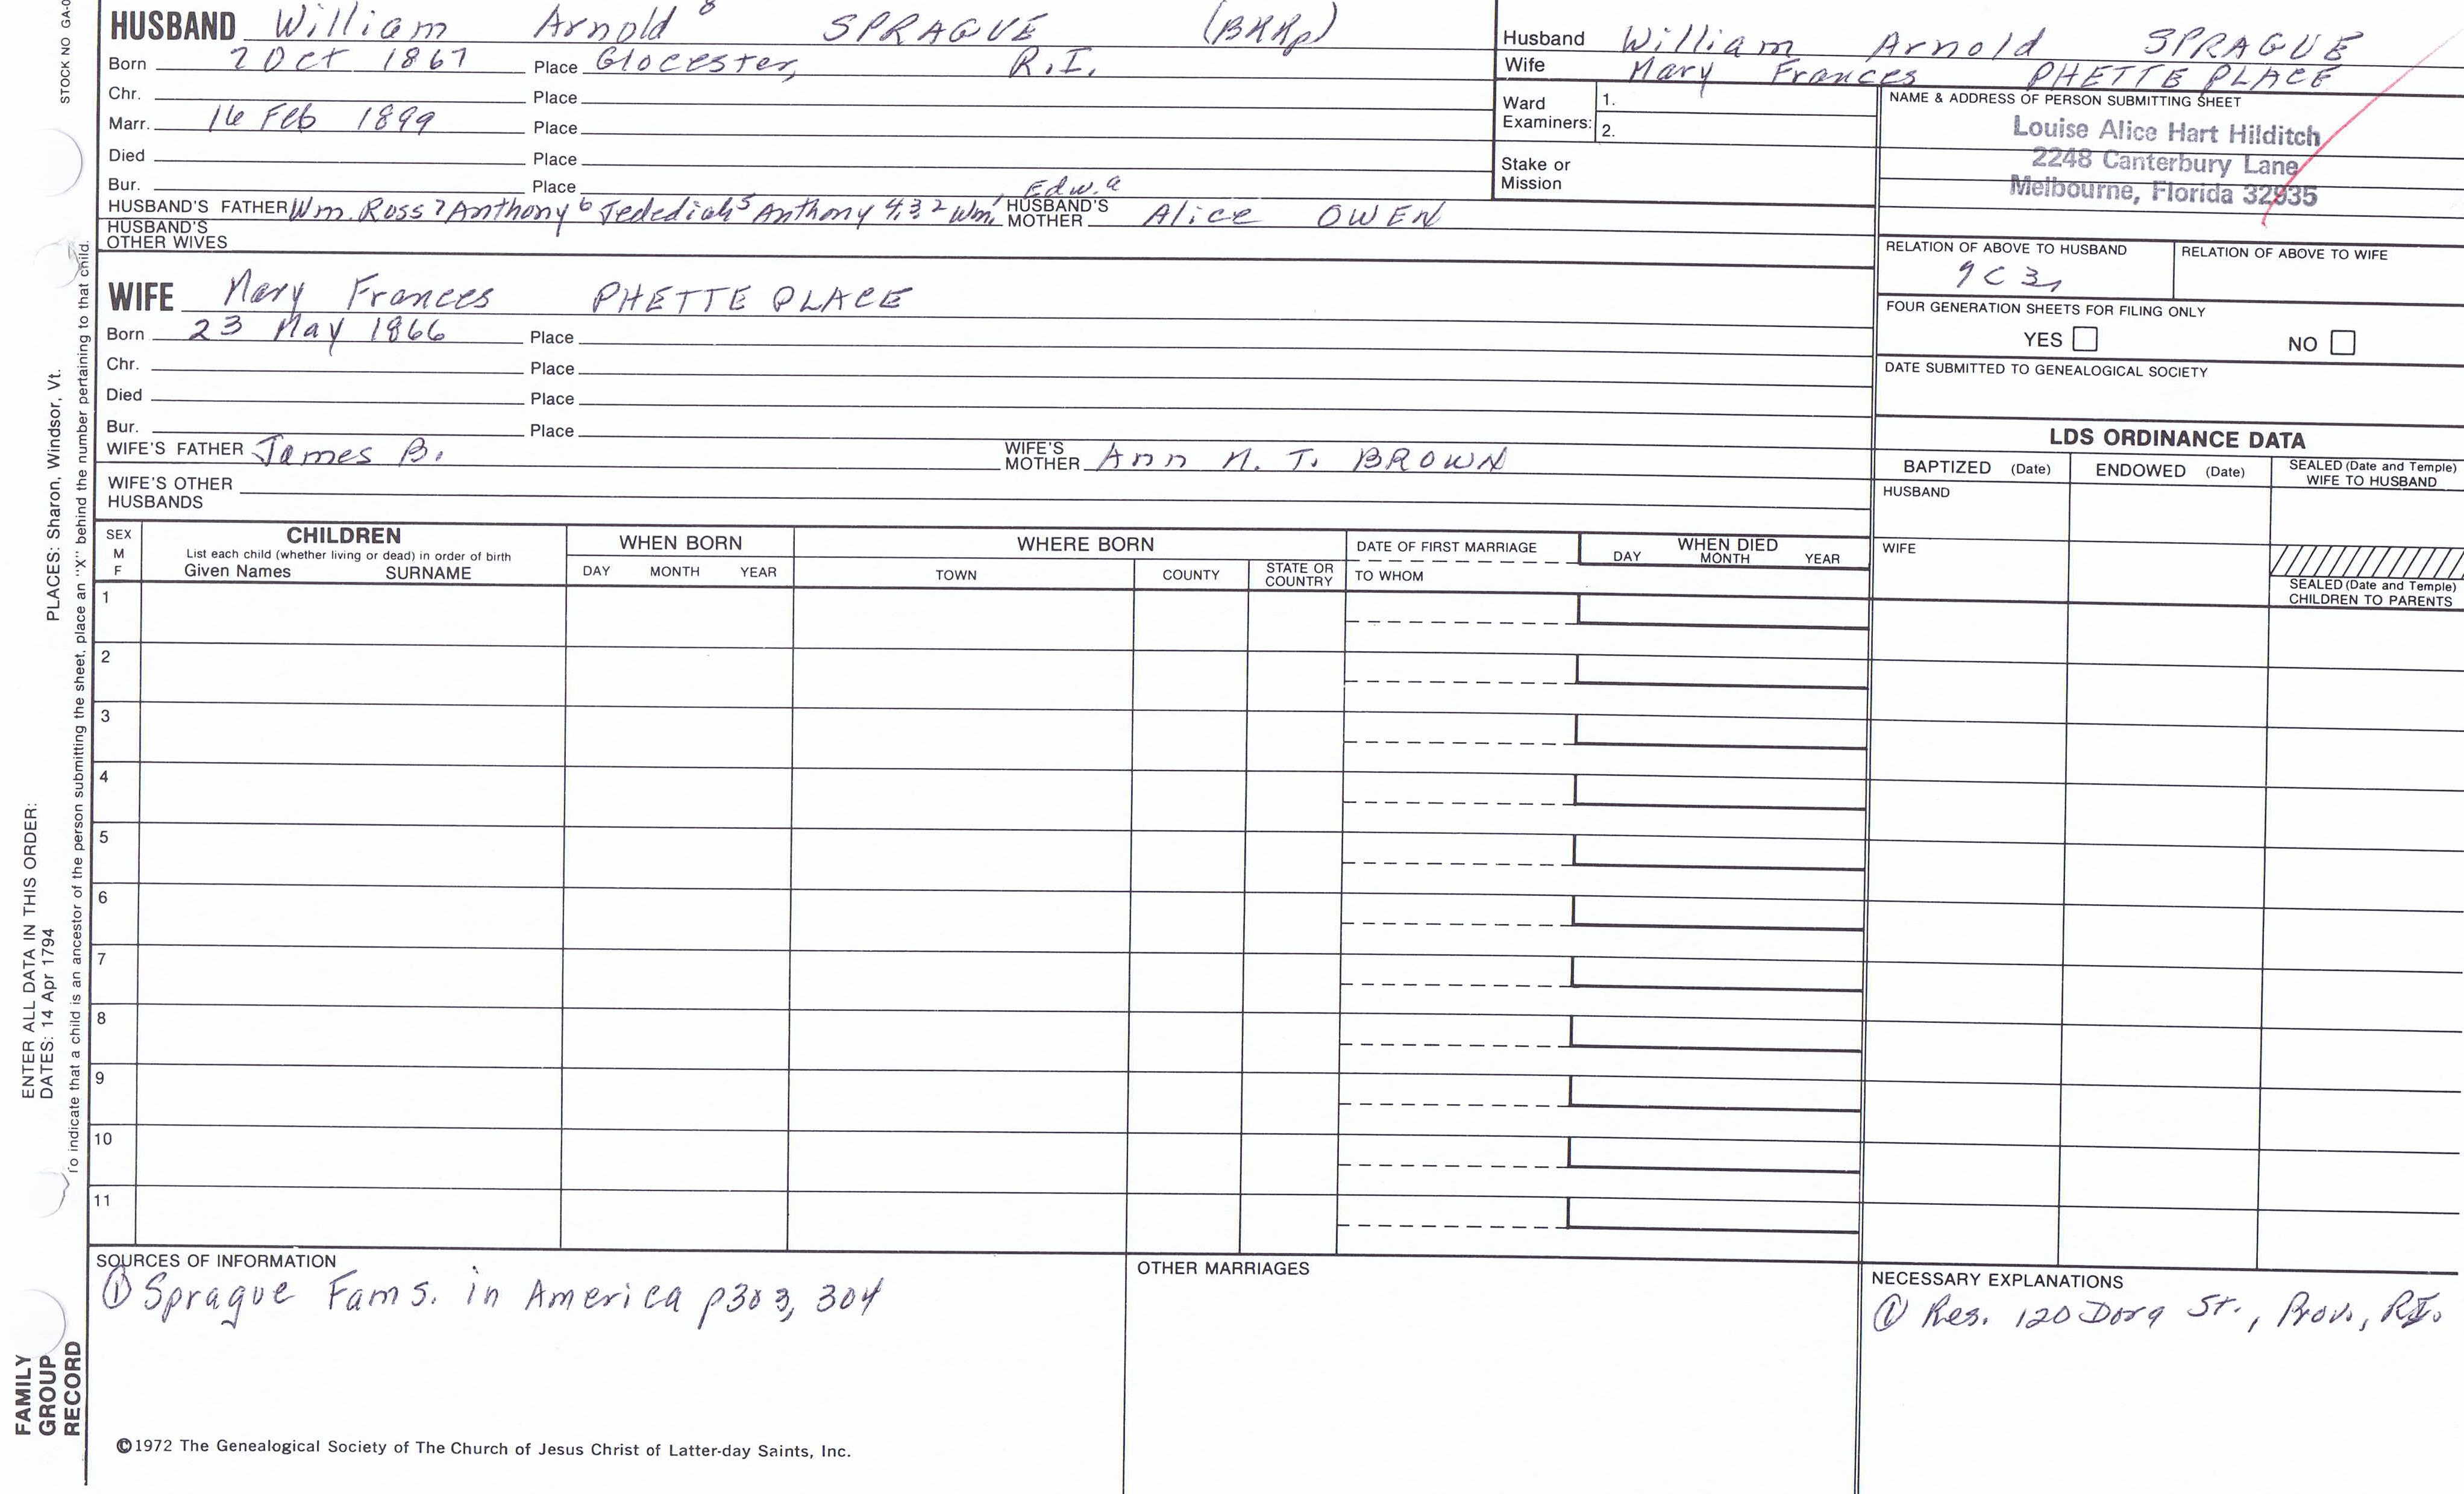 HUSBAND William Arnold 8 SPRAGUE (BRRp)
Born 2 Oct 1867 Place Glocester, R.I.
Chr. Place
Marr. 16 Feb 1899 Place
Died Place
Bur. Place
HUSBAND'S FATHER Wm. Ross 7 Anthony 6 Jedediah 5 Anthony 4,3 2 Wm. 1 Edw. a HUSBAND'S MOTHER Alice OWEN
HUSBAND'S OTHER WIVES
WIFE Mary Frances PHETTE PLACE
Born 23 May 1866 Place
Chr. Place
Died Place
Bur. Place
WIFE'S FATHER James B. WIFE'S MOTHER Ann M. T. BROWN
WIFE'S OTHER HUSBANDS
Husband William Arnold SPRAGUE
Wife Mary Frances PHETTE PLACE
Ward Examiners: 1.
2.
Stake or Mission
NAME & ADDRESS OF PERSON SUBMITTING SHEET
Louise Alice Hart Hilditch
2248 Canterbury Lane
Melbourne, Florida 32935
RELATION OF ABOVE TO HUSBAND RELATION OF ABOVE TO WIFE
9C3r
FOUR GENERATION SHEETS FOR FILING ONLY
YES NO
DATE SUBMITTED TO GENEALOGICAL SOCIETY
LDS ORDINANCE DATA
BAPTIZED (Date) ENDOWED (Date) SEALED (Date and Temple) WIFE TO HUSBAND
HUSBAND
WIFE
SEALED (Date and Temple)
CHILDREN TO PARENTS
SEX M F
CHILDREN
List each child (whether living or dead) in order of birth
Given Names SURNAME
WHEN BORN
DAY MONTH YEAR
WHERE BORN
TOWN COUNTY STATE OR COUNTRY
DATE OF FIRST MARRIAGE
TO WHOM
WHEN DIED
DAY MONTH YEAR
1
2
3
4
5
6
7
8
9
10
11
SOURCES OF INFORMATION
① Sprague Fams. in America p303, 304
OTHER MARRIAGES
NECESSARY EXPLANATIONS
① Res. 120 Dora St., Prov., R.I.
©1972 The Genealogical Society of The Church of Jesus Christ of Latter-day Saints, Inc.
STOCK NO GA-0
PLACES: Sharon, Windsor, Vt.
To indicate that a child is an ancestor of the person submitting the sheet, place an "X" behind the number pertaining to that child.
ENTER ALL DATA IN THIS ORDER:
DATES: 14 Apr 1794
FAMILY
GROUP
RECORD